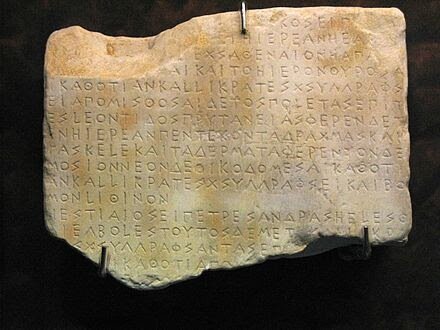 ΚΟΣΕΙΠ
ΗΙΕΡΕΑΝΗΕΑ
ΕΧΣΑΘΕΝΑΙΟΝΗΑΠΑ
ΑΙΚΑΙΤΟΗΙΕΡΟΝΘΥΡΟΣΑ
ΚΑΘΟΤΙΑΝΚΑΛΛΙΚΡΑΤΕΣΧΣΥΓΓΡΑΦΣ
ΕΙΑΠΟΜΙΣΘΟΣΑΙΔΕΤΟΣΠΟΛΕΤΑΣΕΠΙΤ
ΕΣΛΕΟΝΤΙΔΟΣΠΡΥΤΑΝΕΙΑΣΦΕΡΕΝΔΕΤ
ΕΝΗΙΕΡΕΑΝΠΕΝΤΕΚΟΝΤΑΔΡΑΧΜΑΣΚΑΙ
ΤΑΣΚΕΛΕΚΑΙΤΑΔΕΡΜΑΤΑΦΕΡΕΝΤΟΝΔΕ
ΜΟΣΙΟΝΝΕΟΝΔΕΟΙΚΟΔΟΜΕΣΑΙΚΑΘΟΤΙ
ΑΝΚΑΛΛΙΚΡΑΤΕΣΧΣΥΓΓΡΑΦΣΕΙΚΑΙΒΟ
ΜΟΝΛΙΘΙΝΟΝ
ΗΕΣΤΙΑΙΟΣΕΙΠΕΤΡΕΣΑΝΔΡΑΣΗΕΛΕΣΘ
ΑΙΕΓΒΟΛΕΣΤΟΥΤΟΣΔΕΜΕΤ
ΣΧΣΥΓΓΡΑΦΣΑΝΤΑΣΕΠ
ΙΚΑΘΟΤΙΑΠΟΜ